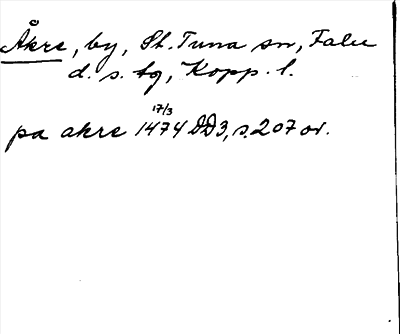 Åkre, by, St. Tuna sn, Falu
d. s. tg, Kopp. l.
17/3
pa akre 1474 DD3, s. 207 or.